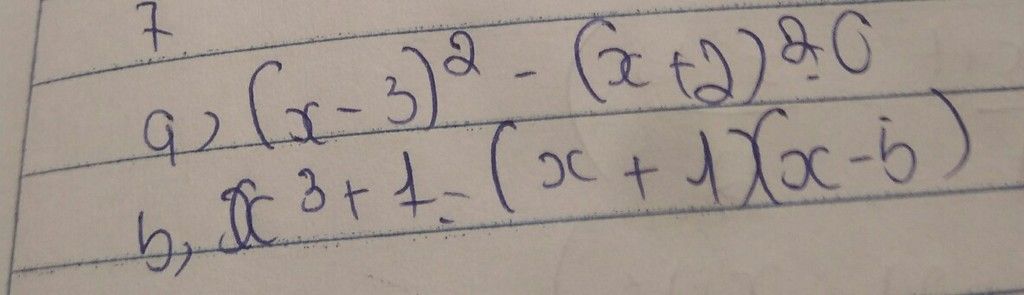 7
a) (x - 3)² - (x + 2)² = 0
b, x³ + 1 = (x + 1)(x - 5)